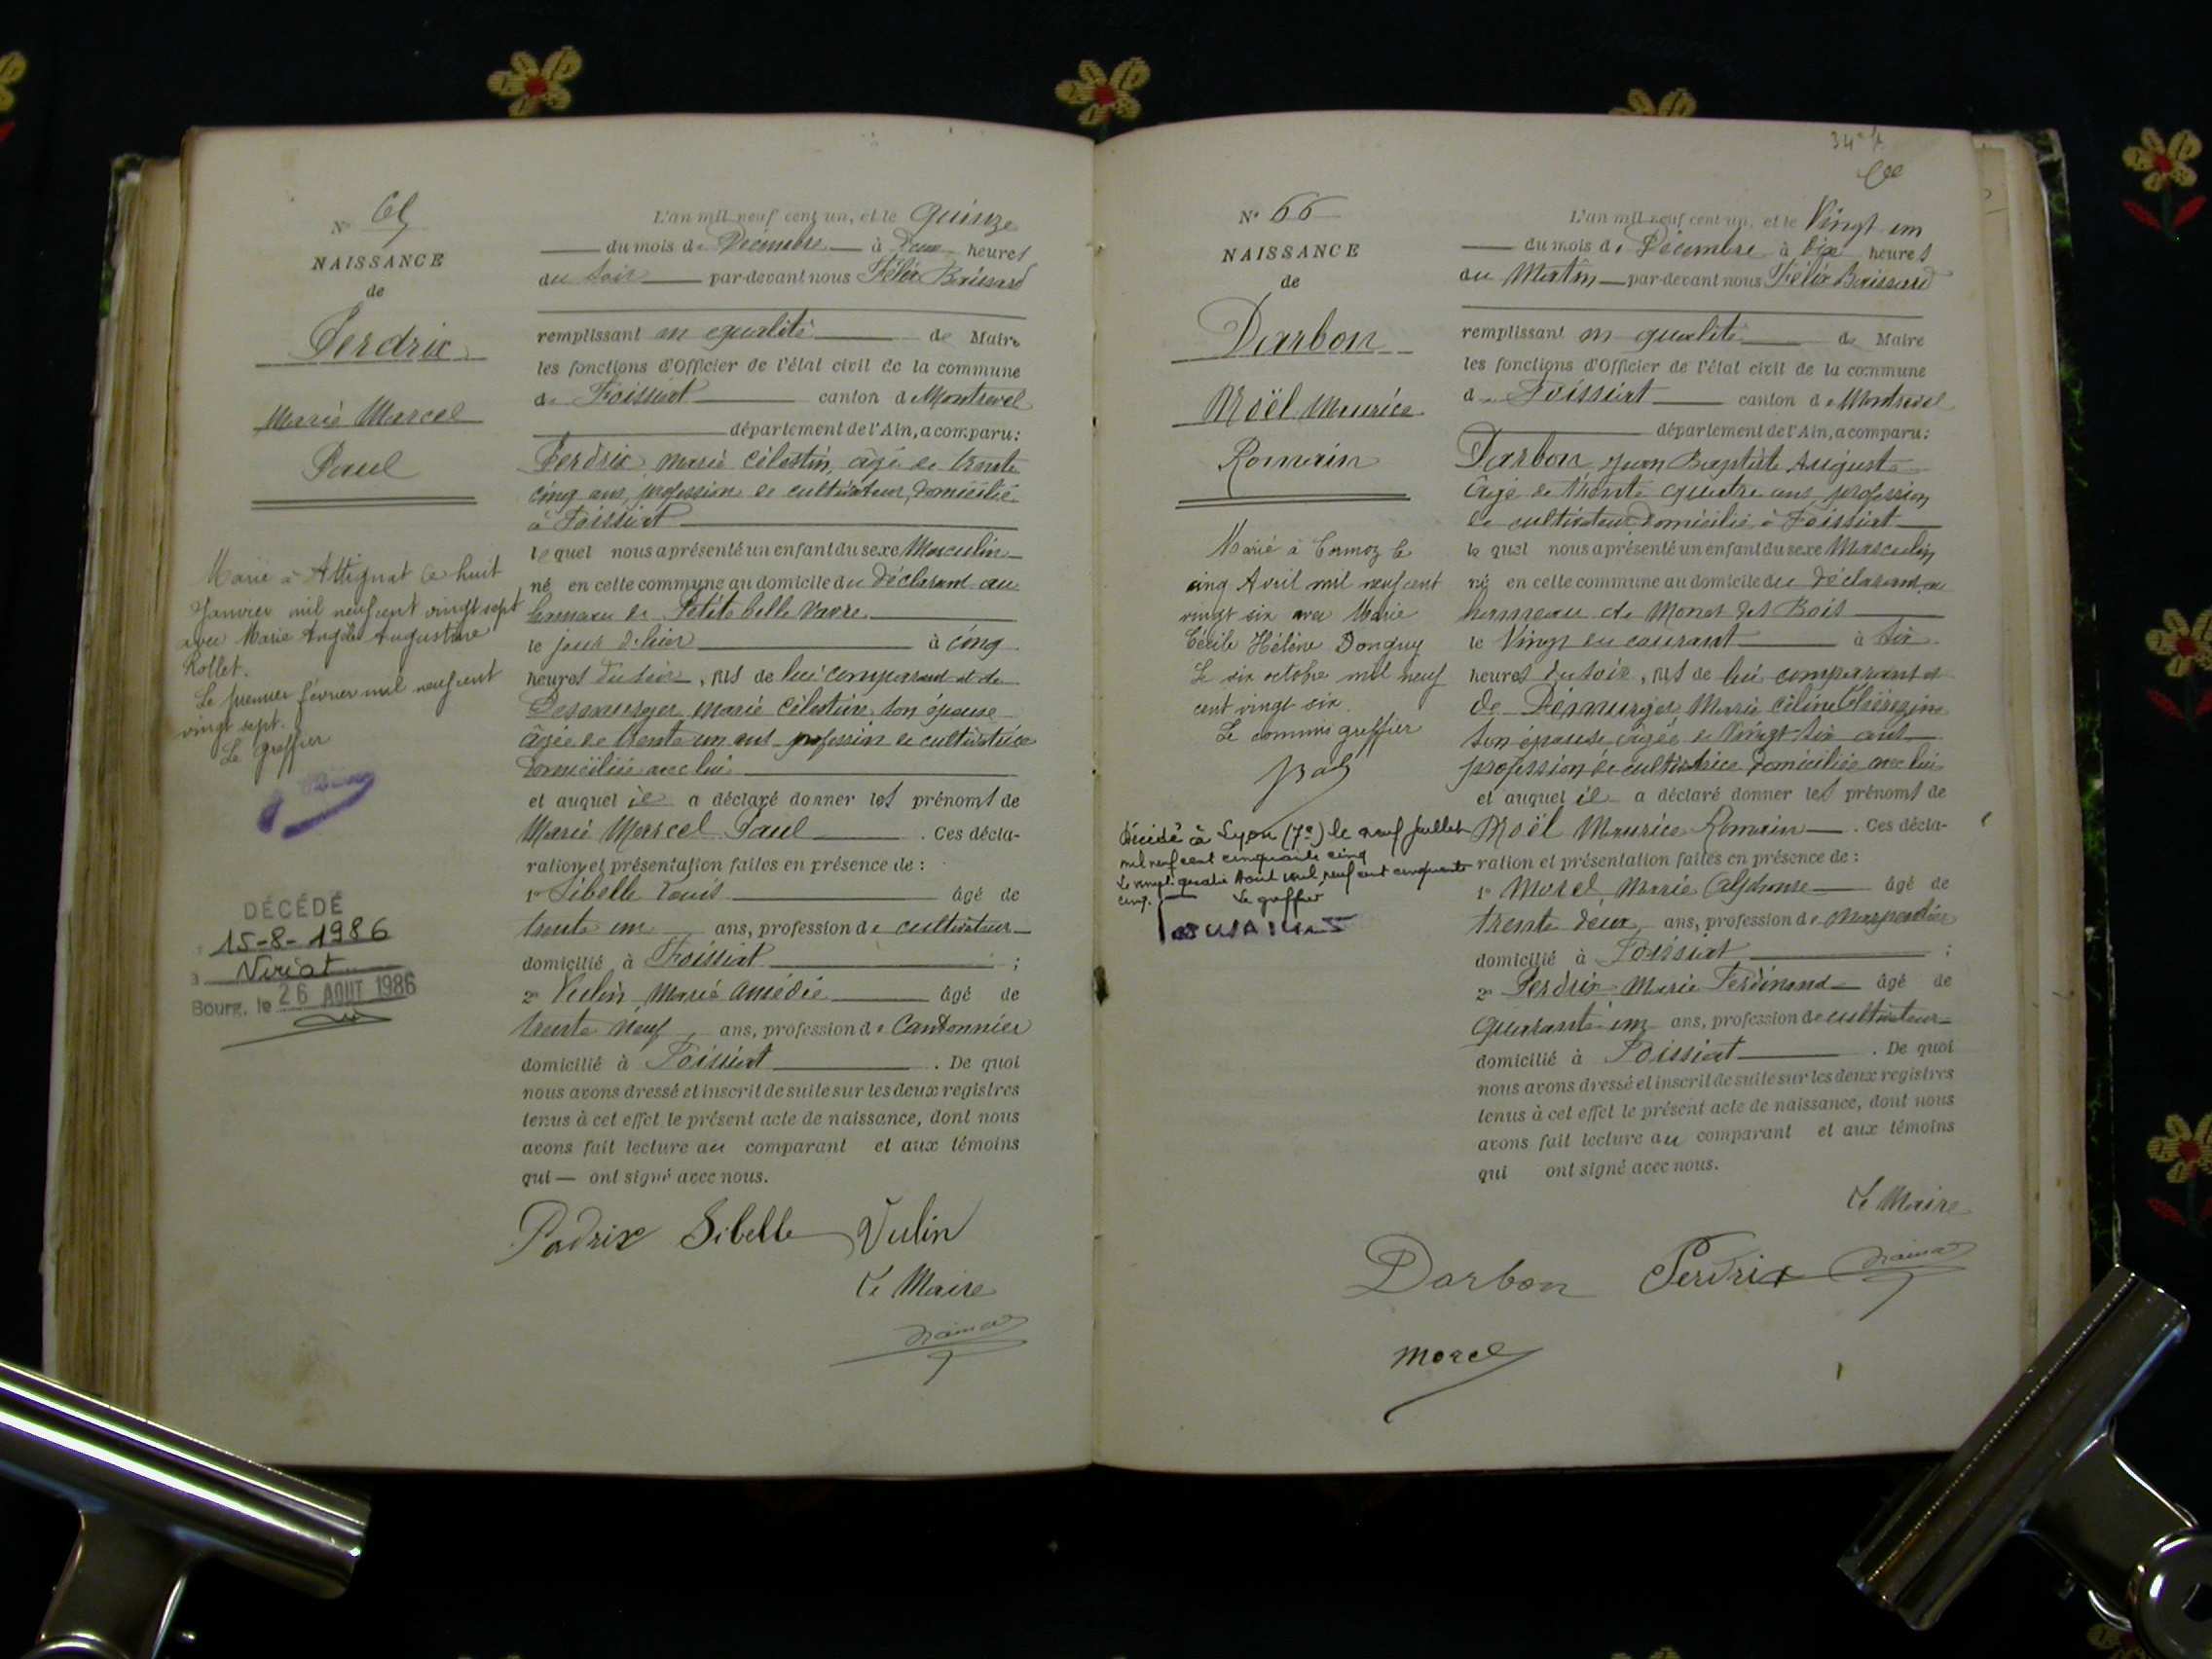 N° 65
NAISSANCE
de
Perdrix
Marie Marcel
Paul
Marié à Attignat le huit
Janvier mil neuf cent vingt sept
avec Marie Angèle Augustine
Rollet.
Le premier février mil neuf cent
vingt sept.
Le greffier
DÉCÉDÉ
15-8-1986
à Viriat
Bourg, le 26 AOUT 1986
L'an mil neuf cent un, et le quinze
du mois de Décembre à deux heures
du soir par-devant nous Félix Boissard
remplissant en qualité de Maire
les fonctions d'Officier de l'état civil de la commune
de Foissiat canton de Montrevel
département de l'Ain, a comparu:
Perdrix Marie Célestin, âgé de trente
cinq ans, profession de cultivateur, domicilié
à Foissiat
lequel nous a présenté un enfant du sexe Masculin
né en cette commune au domicile du déclarant au
hameau de Petite belle vavre
le jour d'hier à cinq
heures du soir, fils de lui comparant et de
Desmurger Marie Célestine son épouse
âgée de trente un ans profession de cultivatrice
domiciliée avec lui
et auquel il a déclaré donner les prénoms de
Marie Marcel Paul. Ces décla-
ration et présentation faites en présence de:
1° Sibelle Louis âgé de
trente un ans, profession de cultivateur
domicilié à Foissiat;
2° Vulin Marie Amédée âgé de
trente neuf ans, profession de Cantonnier
domicilié à Foissiat. De quoi
nous avons dressé et inscrit de suite sur les deux registres
tenus à cet effet le présent acte de naissance, dont nous
avons fait lecture au comparant et aux témoins
qui — ont signé avec nous.
Perdrix Sibelle Vulin
Le Maire
N° 66
NAISSANCE
de
Darbon
Noël Maurice
Romain
Marié à Cormoz le
cinq Avril mil neuf cent
vingt six avec Marie
Cécile Hélène Donguy
Le six octobre mil neuf
cent vingt six
Le commis greffier
Décédé à Lyon (7e) le neuf Juillet
mil neuf cent cinquante cinq
Le vingt-quatre Août mil neuf cent cinquante
cinq. Le greffier
L'an mil neuf cent un, et le Vingt un
du mois de Décembre à dix heures
du Matin par-devant nous Félix Boissard
remplissant en qualité de Maire
les fonctions d'Officier de l'état civil de la commune
de Foissiat canton de Montrevel
département de l'Ain, a comparu:
Darbon Jean Baptiste Auguste
âgé de trente quatre ans, profession
de cultivateur domicilié à Foissiat
lequel nous a présenté un enfant du sexe Masculin
né en cette commune au domicile du déclarant au
hameau de Monet des Bois
le Vingt du courant à six
heures du soir, fils de lui comparant et
de Desmurger Marie Céline
son épouse, âgée de Vingt six ans
profession de cultivatrice domiciliée avec lui
et auquel il a déclaré donner les prénoms de
Noël Maurice Romain. Ces décla-
ration et présentation faites en présence de:
1° Morel Marie Alphonse âgé de
trente deux ans, profession de charpentier
domicilié à Foissiat;
2° Perdrix Marie Ferdinand âgé de
quarante un ans, profession de cultivateur
domicilié à Foissiat. De quoi
nous avons dressé et inscrit de suite sur les deux registres
tenus à cet effet le présent acte de naissance, dont nous
avons fait lecture au comparant et aux témoins
qui ont signé avec nous.
Le Maire
Darbon Perdrix
Morel